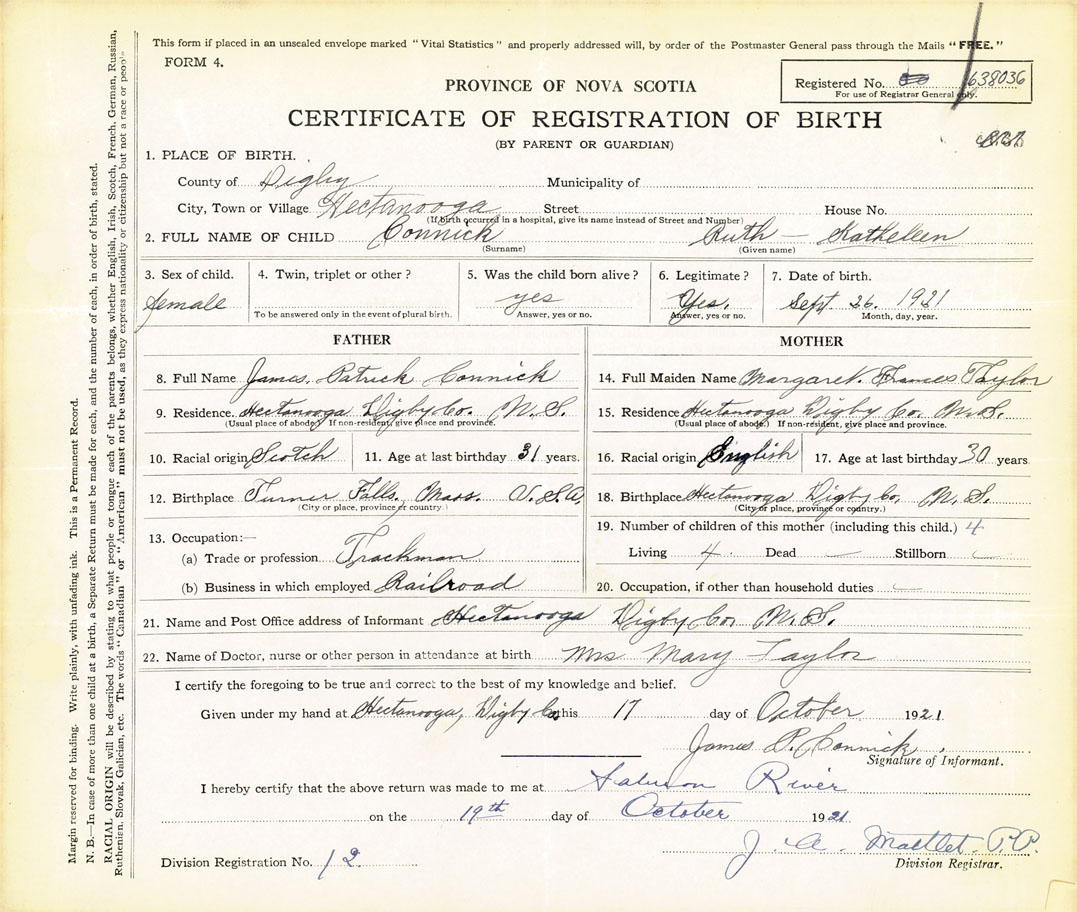 This form if placed in an unsealed envelope marked "Vital Statistics" and properly addressed will, by order of the Postmaster General pass through the Mails "FREE."
FORM 4.
Registered No. 638036
For use of Registrar General only.
PROVINCE OF NOVA SCOTIA
CERTIFICATE OF REGISTRATION OF BIRTH
(BY PARENT OR GUARDIAN)
1. PLACE OF BIRTH.
County of Digby Municipality of
City, Town or Village Hectanooga Street House No.
(If birth occurred in a hospital, give its name instead of Street and Number)
2. FULL NAME OF CHILD Connick Ruth – Katheleen
(Surname) (Given name)
3. Sex of child. 4. Twin, triplet or other? 5. Was the child born alive? 6. Legitimate? 7. Date of birth.
female yes Yes. Sept. 26. 1921
To be answered only in the event of plural birth. Answer, yes or no. Answer, yes or no. Month, day, year.
FATHER MOTHER
8. Full Name James. Patrick Connick 14. Full Maiden Name Margaret. Frances Taylor
9. Residence. Hectanooga Digby Co. N. S. 15. Residence Hectanooga Digby Co. N. S.
(Usual place of abode.) If non-resident, give place and province. (Usual place of abode.) If non-resident, give place and province.
10. Racial origin Scotch 11. Age at last birthday 31 years. 16. Racial origin English 17. Age at last birthday 30 years
12. Birthplace Turner Falls, Mass. U. S. A. 18. Birthplace Hectanooga Digby Co. N. S.
(City or place, province or country.) (City or place, province or country.)
19. Number of children of this mother (including this child.) 4
13. Occupation:—
(a) Trade or profession Trackman Living 4. Dead — Stillborn —
(b) Business in which employed Railroad 20. Occupation, if other than household duties —
21. Name and Post Office address of Informant Hectanooga Digby Co. N. S.
22. Name of Doctor, nurse or other person in attendance at birth Mrs Mary Taylor
I certify the foregoing to be true and correct to the best of my knowledge and belief.
Given under my hand at Hectanooga, Digby Co. this 17 day of October 1921.
James P. Connick.
Signature of Informant.
I hereby certify that the above return was made to me at Salmon River
on the 19th day of October 1921
J. A. P.P.
Division Registration No. 12 Division Registrar.
Margin reserved for binding. Write plainly, with unfading ink. This is a Permanent Record.
N. B.—In case of more than one child at a birth, a Separate Return must be made for each, and the number of each, in order of birth, stated.
RACIAL ORIGIN will be described by stating to what people or tongue each of the parents belongs, whether English, Irish, Scotch, French, German, Russian,
Ruthenian, Slovak, Galician, etc. The words "Canadian" or "American" must not be used, as they express nationality or citizenship but not a race or people